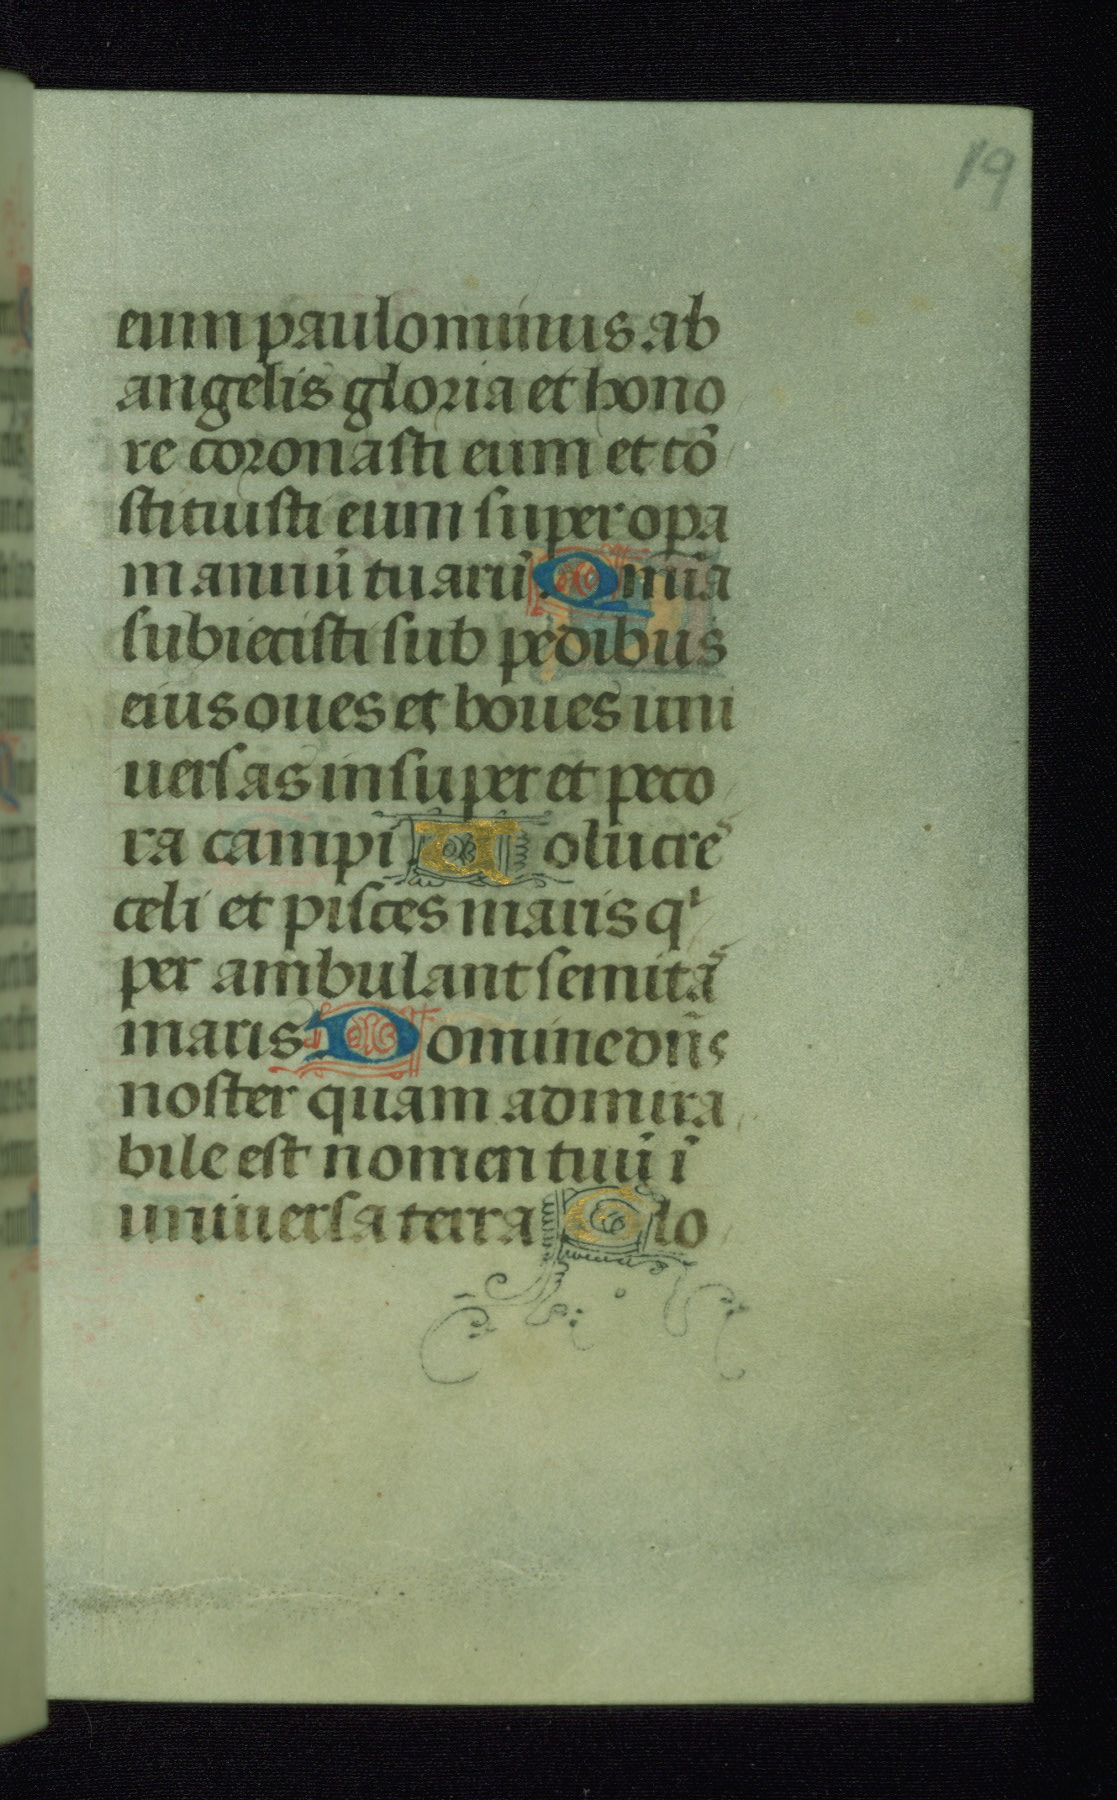 19
eum paulominus ab
angelis gloria et hono
re coronasti eum et cõ
stituisti eum super opa
manuũ tuarũ. Omĩa
subiecisti sub pedibus
eius oues et boues uni
uersas insuper et peco
ra campi Uolucrẽ
celi et pisces maris qⁱ
per ambulant semitã
maris Domine dñs
noster quam admira
bile est nomen tuũ ĩ
uniuersa terra Glo